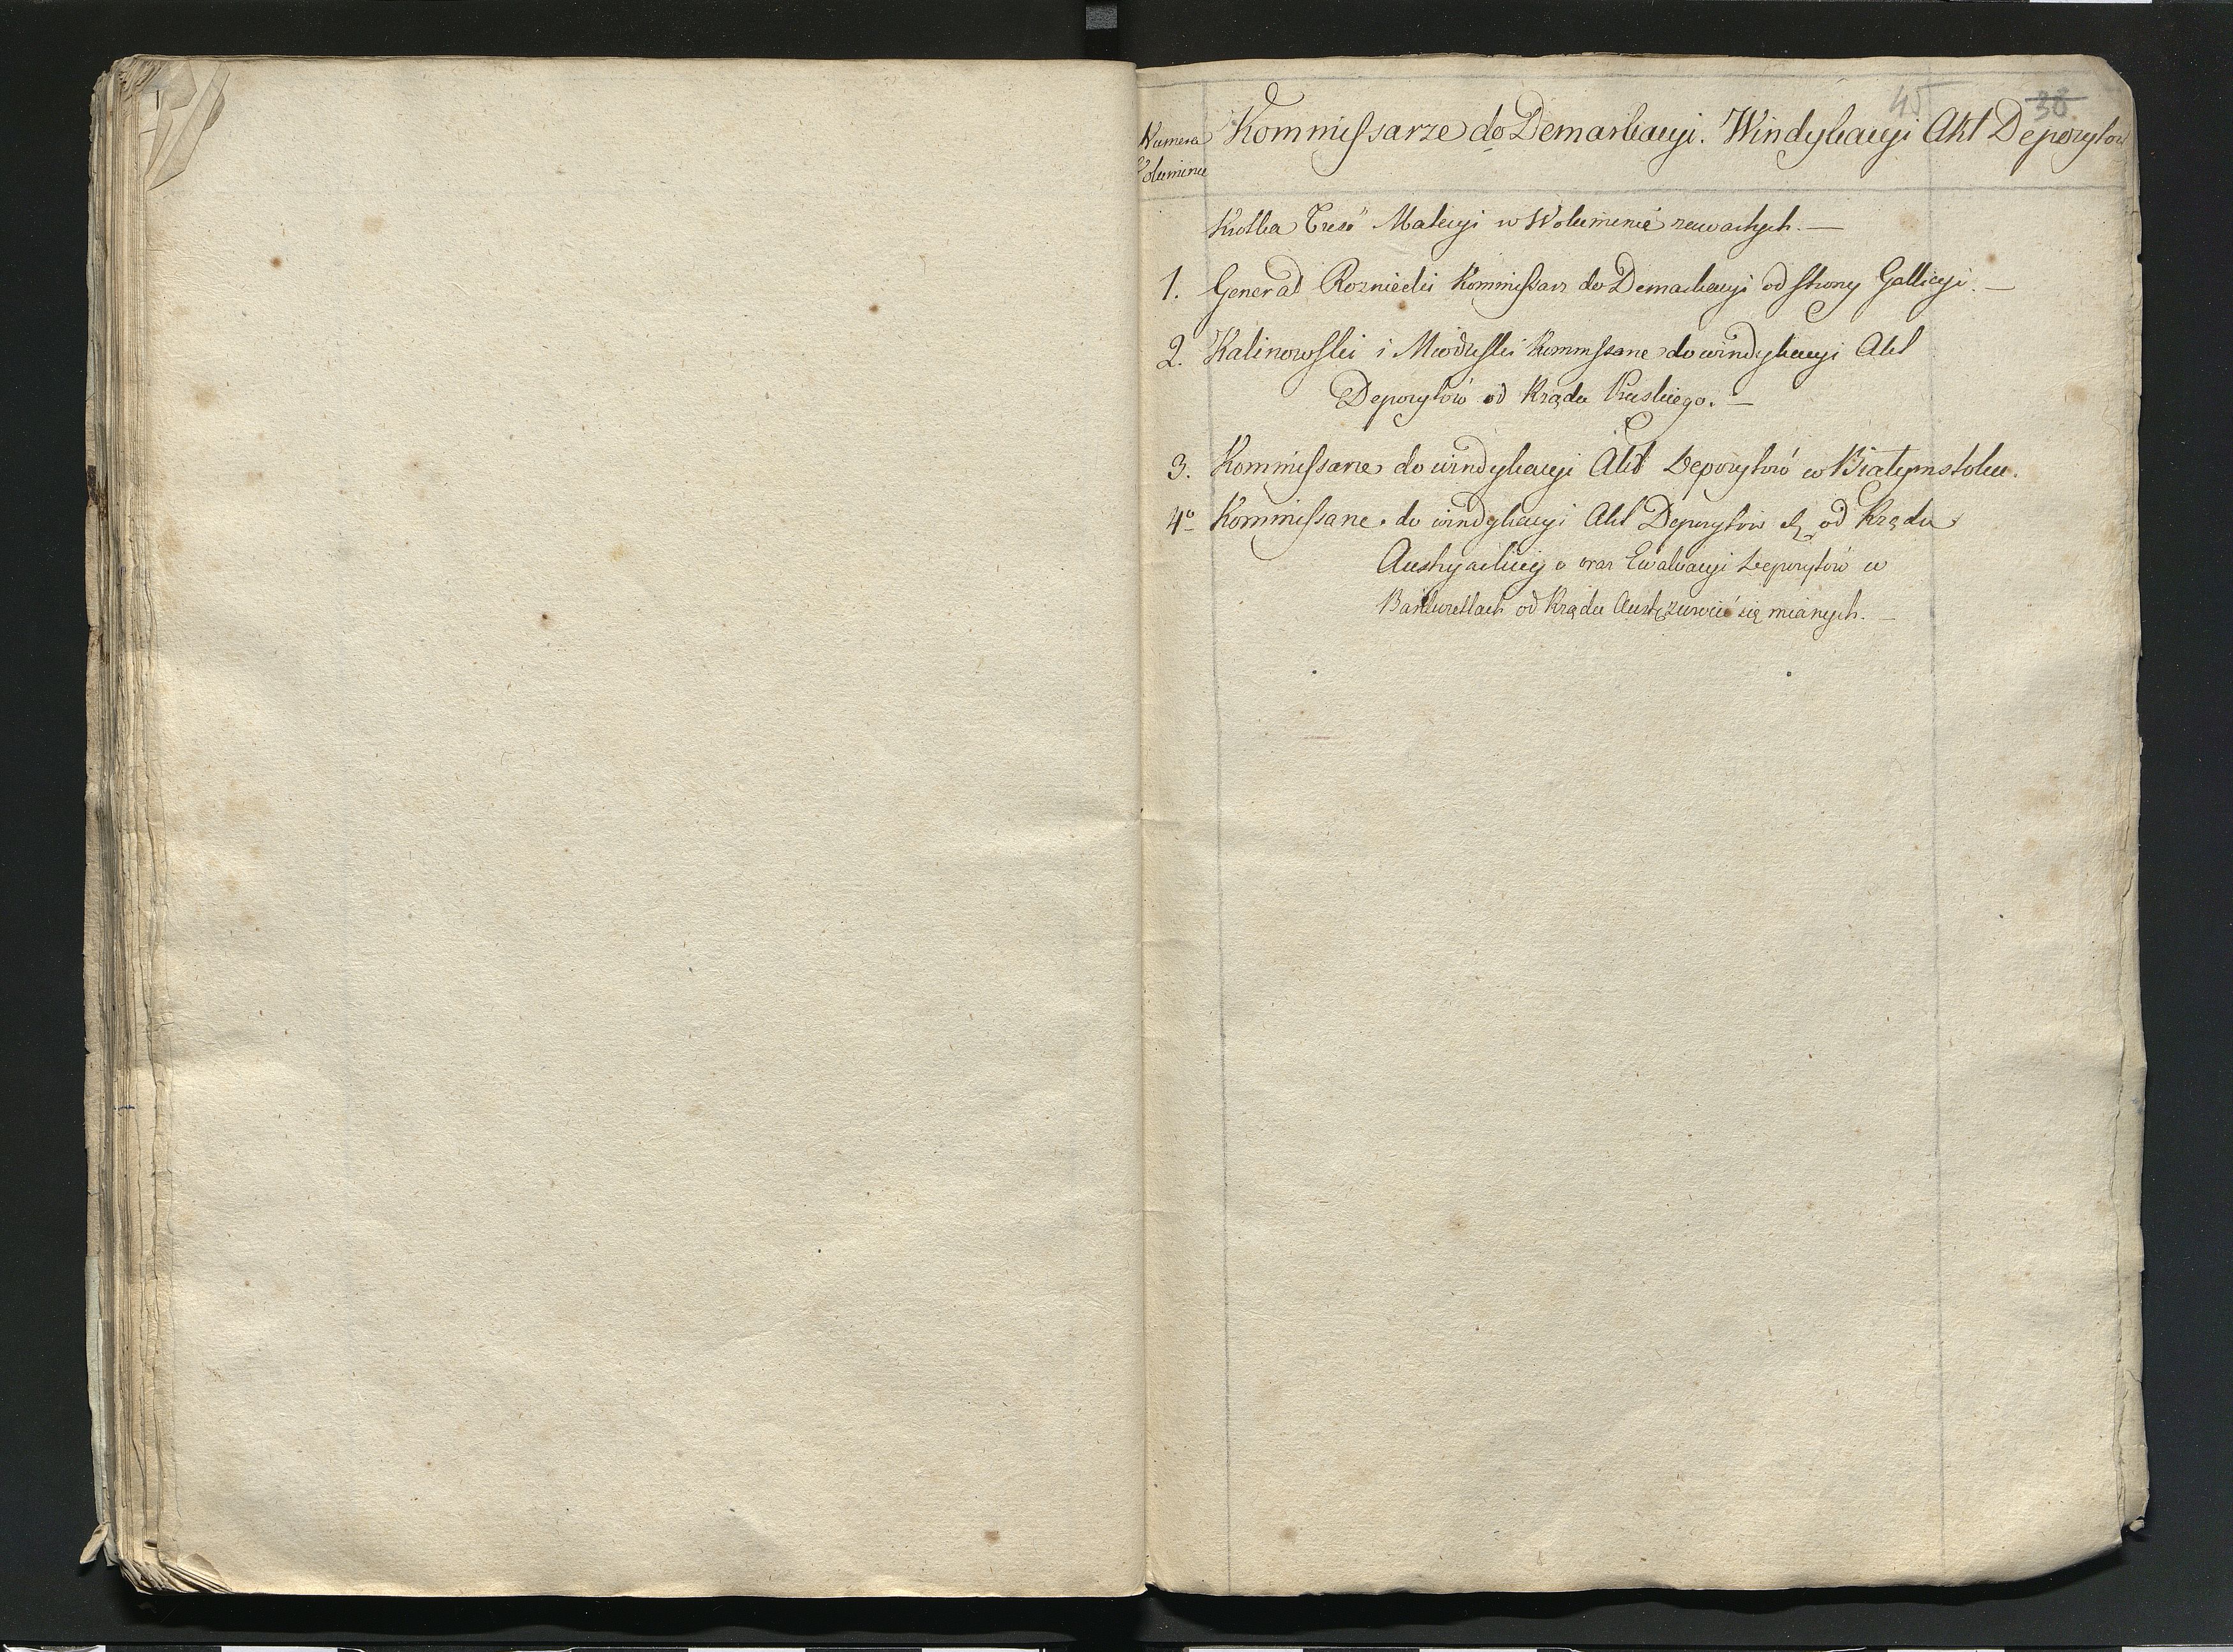 45 38.
Numera Kommissarze do Demarkacyi. Windykacyi Akt Depozytow
Volumina
Krotka Treść Materyi w Woluminie zawartych. —
1. Generał Rozniecki Kommissarz do Demarkacyi od strony Gallicyi. —
2. Kalinowski i Mioduski Kommissarze do windykacyi Akt
Depozytów od Rządu Pruskiego. —
3. Kommissarze do windykacyi Akt Depozytów w Białymstoku.
4º Kommissarze do windykacyi Akt Depozytów od Rządu
Austryackiego oraz Ewaluacyi Depozytów w
Bankocetlach od Rządu Aust: zwrócić się mianych. —